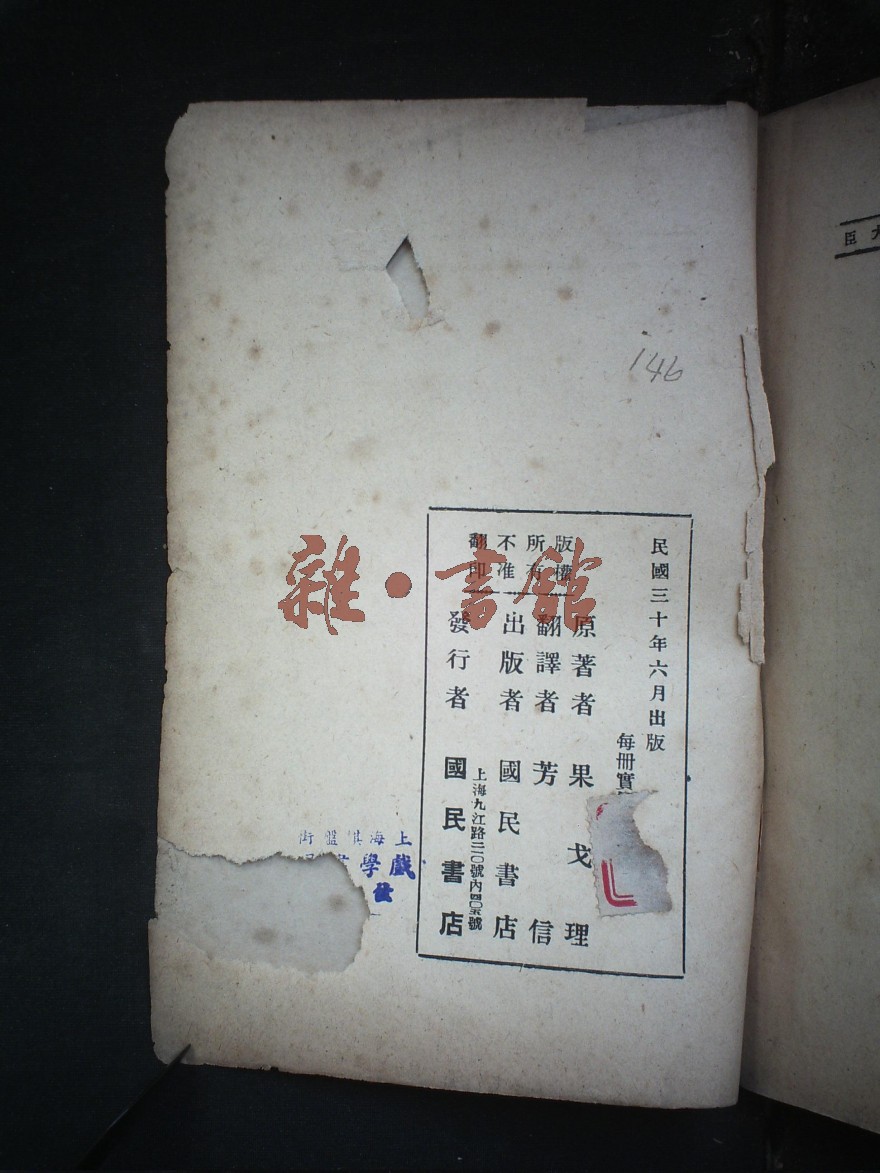 臣大
146
民國三十年六月出版
每冊實
版權所有不准翻印
原著者 果戈理
翻譯者 芳信
出版者 國民書店
上海九江路二一〇號內四〇五號
發行者 國民書店
雜·書館
上海棋盤街
戲學